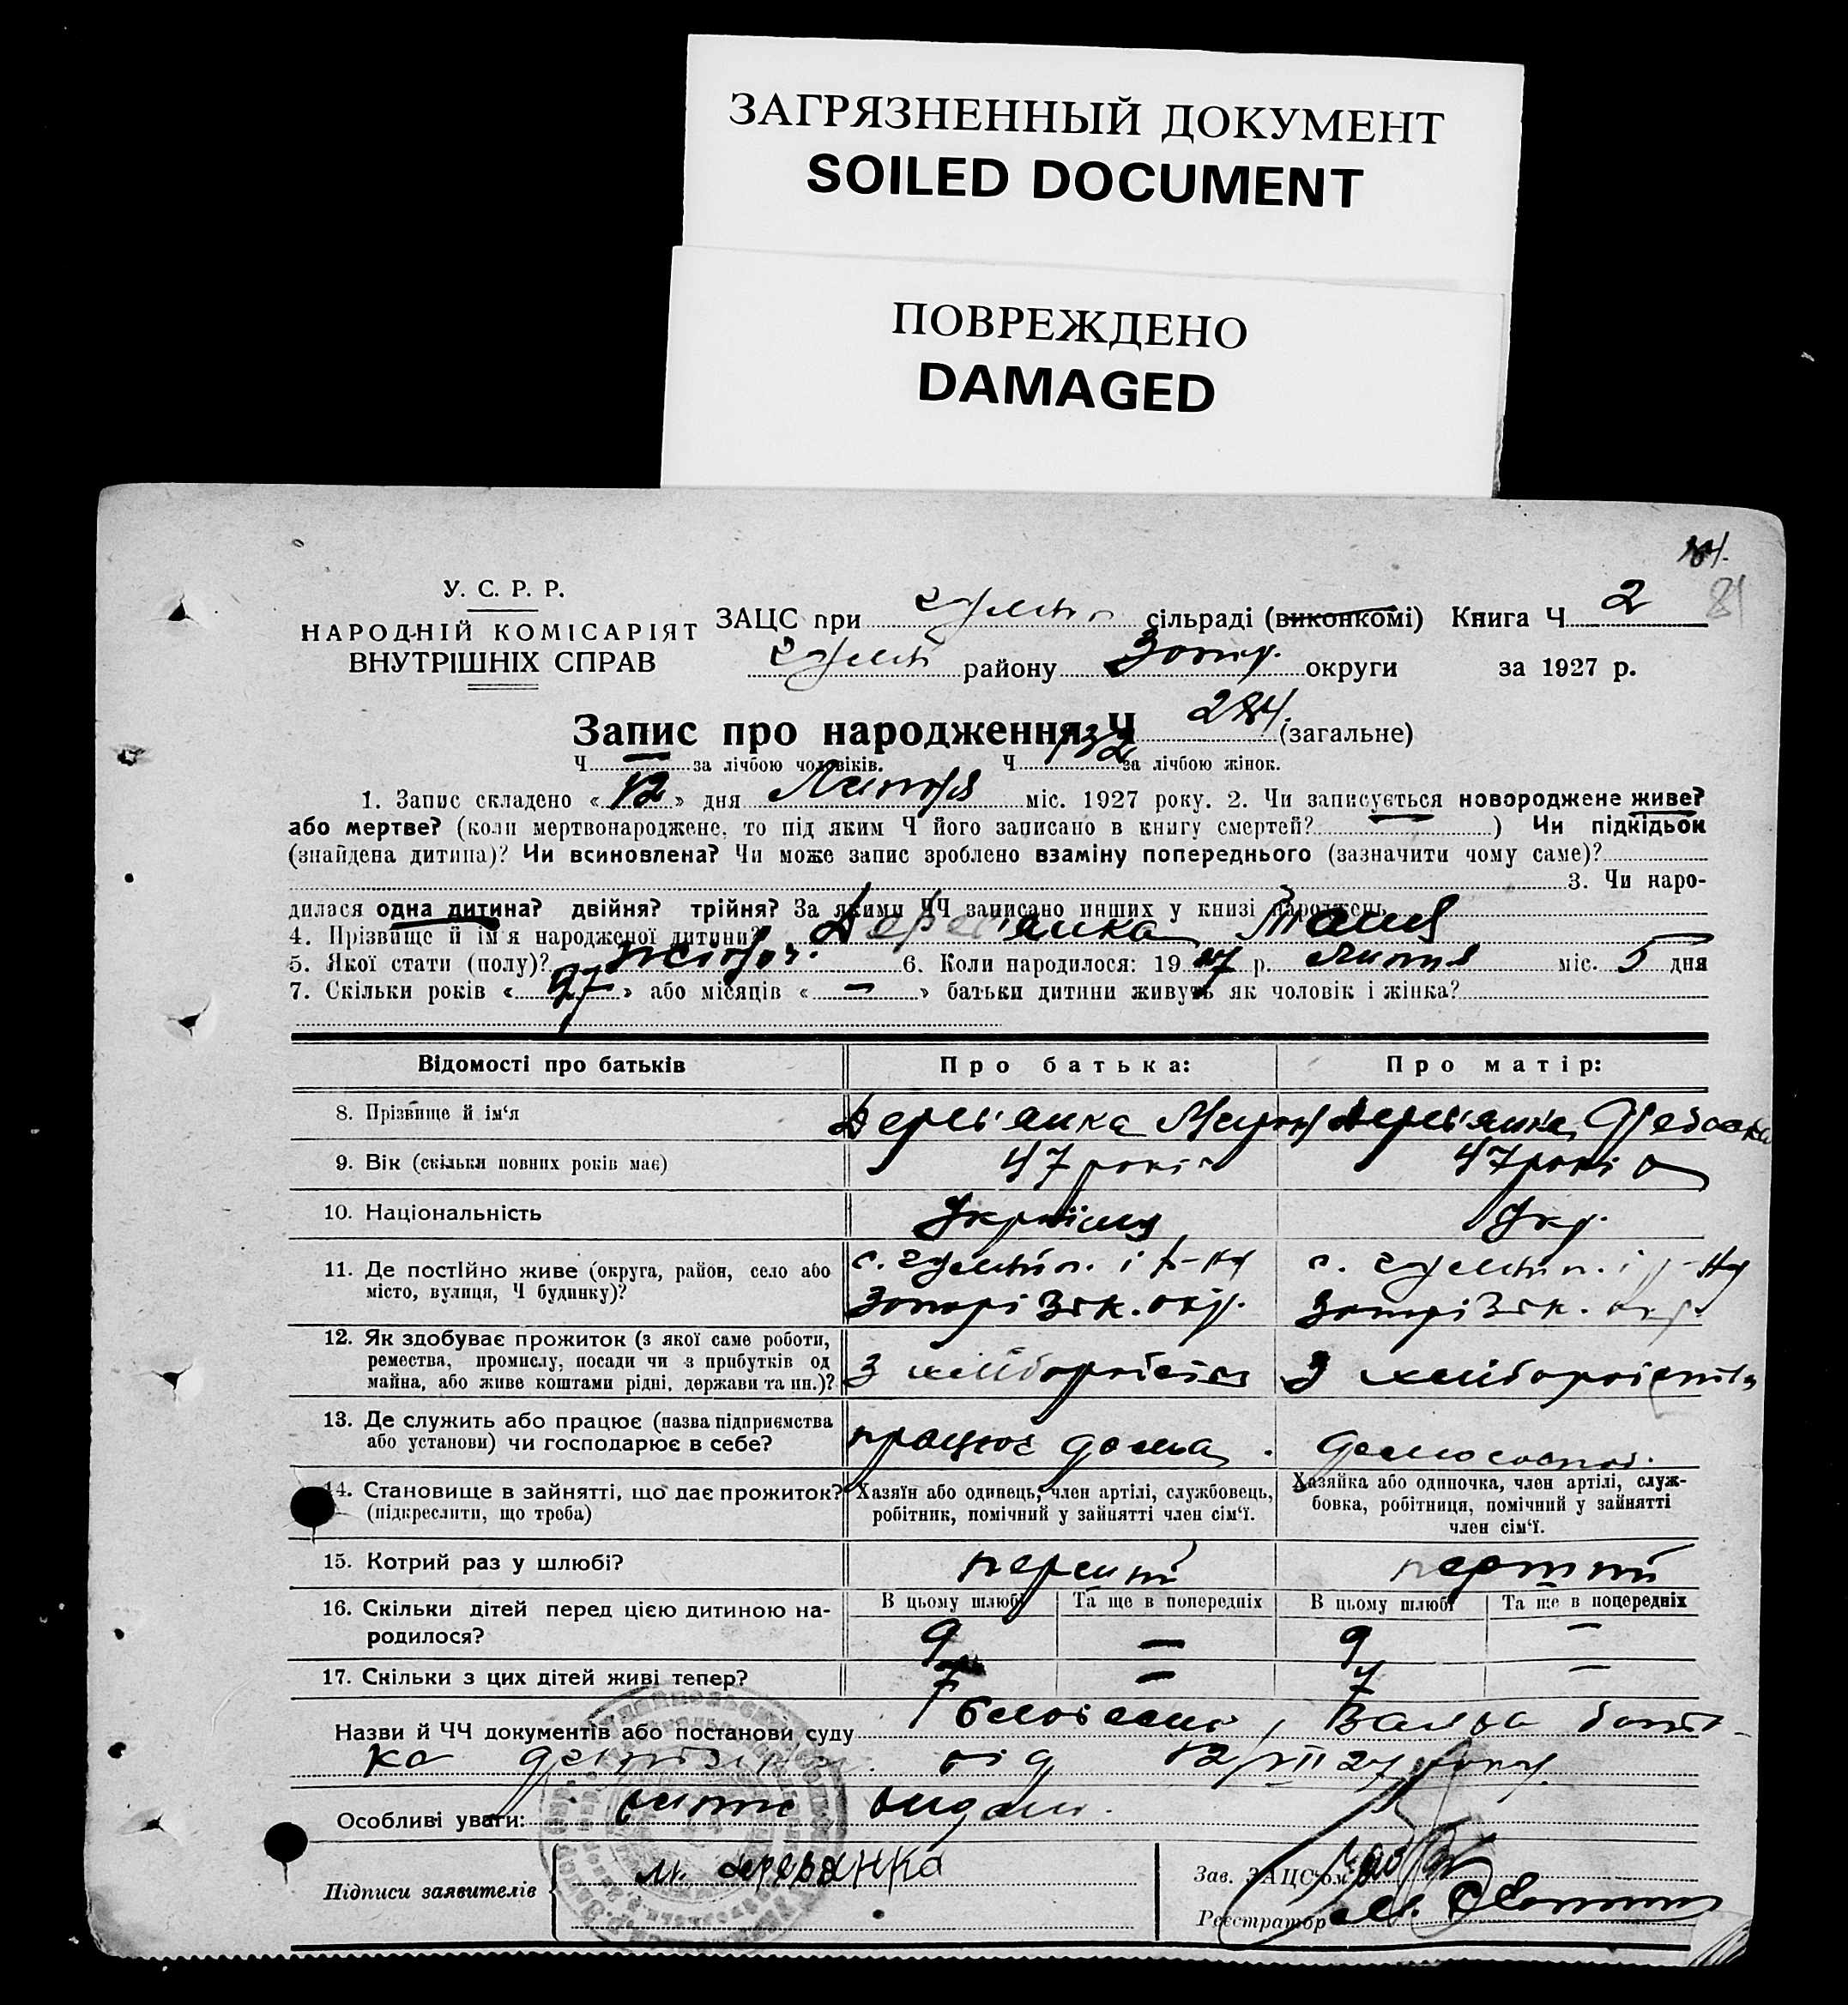 ЗАГРЯЗНЕННЫЙ ДОКУМЕНТ
SOILED DOCUMENT
ПОВРЕЖДЕНО
DAMAGED
81
У. С. Р. Р.
НАРОДНІЙ КОМІСАРІЯТ
ВНУТРІШНІХ СПРАВ
ЗАЦС при сільраді (виконкомі) Книга Ч 2
району Запор. округи за 1927 р.
Запис про народження Ч 284 (загальне)
Ч — за лічбою чоловіків. Ч 132 за лічбою жінок.
1. Запис складено « 12 » дня Липня міс. 1927 року. 2. Чи записується новороджене живе?
або мертве? (коли мертвонароджене, то під яким Ч його записано в книгу смертей? — ) Чи підкідьок
(знайдена дитина)? Чи всиновлена? Чи може запис зроблено взаміну попереднього (зазначити чому саме)?
3. Чи наро-
дилася одна дитина? двійня? трійня? За якими ЧЧ записано инших у книзі народжень
4. Прізвище й ім'я народженої дитини? Дерев'янка
5. Якої стати (полу)? жіноч. 6. Коли народилося: 19 27 р. Липня міс. 5 дня
7. Скільки років « 27 » або місяців « — » батьки дитини живуть як чоловік і жінка?
Відомості про батьків Про батька: Про матір:
8. Прізвище й ім'я Дерев'янка Мирон Дерев'янка
9. Вік (скільки повних років має) 47 років 47 років
10. Національність Українець Укр.
11. Де постійно живе (округа, район, село або
місто, вулиця, Ч будинку)?
с. і р-ну с. і р-ну
Запорізьк. окр. Запорізьк. окр.
12. Як здобуває прожиток (з якої саме роботи,
ремества, промислу, посади чи з прибутків од
майна, або живе коштами рідні, держави та ин.)?
З хліборобства З хліборобства
13. Де служить або працює (назва підприємства
або установи) чи господарює в себе?
працює дома домогоспод.
14. Становище в зайнятті, що дає прожиток?
(підкреслити, що треба)
Хазяїн або одинець, член артілі, службовець,
робітник, помічний у зайнятті член сім'ї.
Хазяйка або одиночка, член артілі, служ-
бовка, робітниця, помічний у зайнятті
член сім'ї.
15. Котрий раз у шлюбі? перший перший
16. Скільки дітей перед цією дитиною на-
родилося?
В цьому шлюбі Та ще в попередніх В цьому шлюбі Та ще в попередніх
9 — 9 —
17. Скільки з цих дітей живі тепер? 7 — 7 —
Назви й ЧЧ документів або постанови суду
від 12/VII 27 року
Особливі уваги:
Підписи заявителів м. деревянка
Зав. ЗАЦС'ом
Реєстратор